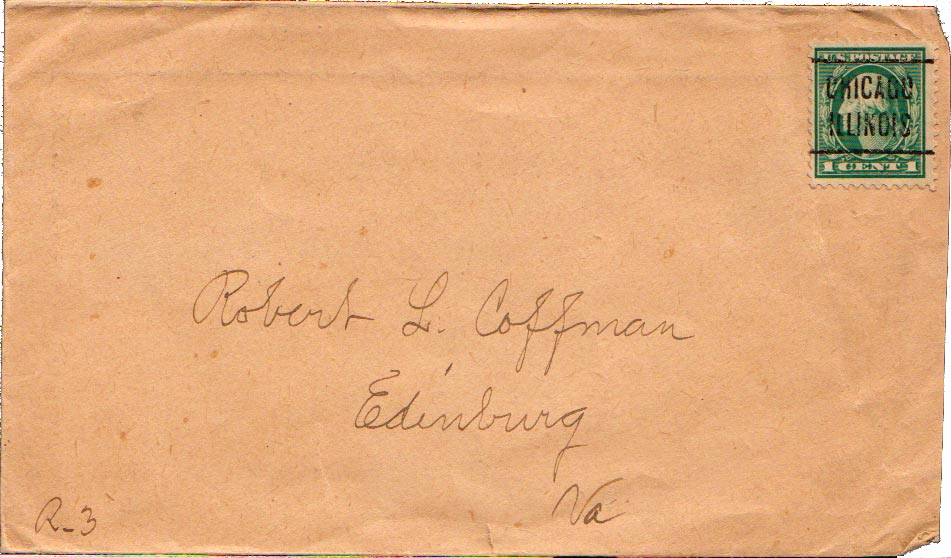 U.S. POSTAGE
CHICAGO
ILLINOIS
1 CENT 1
Robert L. Coffman
Edinburg
Va
R-3